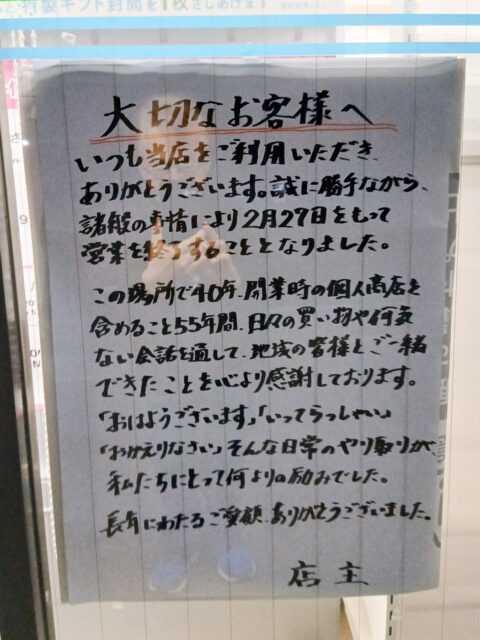 製ギフト封筒を1枚さしあげます
大切なお客様へ
いつも当店をご利用いただき、
ありがとうございます。誠に勝手ながら、
諸般の事情により2月27日をもって
営業を終了することとなりました。
この場所で40年、開業時の個人商店を
含めること55年間、日々の買い物や何気
ない会話を通して、地域の皆様とご一緒
できたことを心より感謝しております。
「おはようございます」「いってらっしゃい」
「おかえりなさい」そんな日常のやり取りが、
私たちにとって何よりの励みでした。
長年にわたるご愛顧、ありがとうございました。
店主